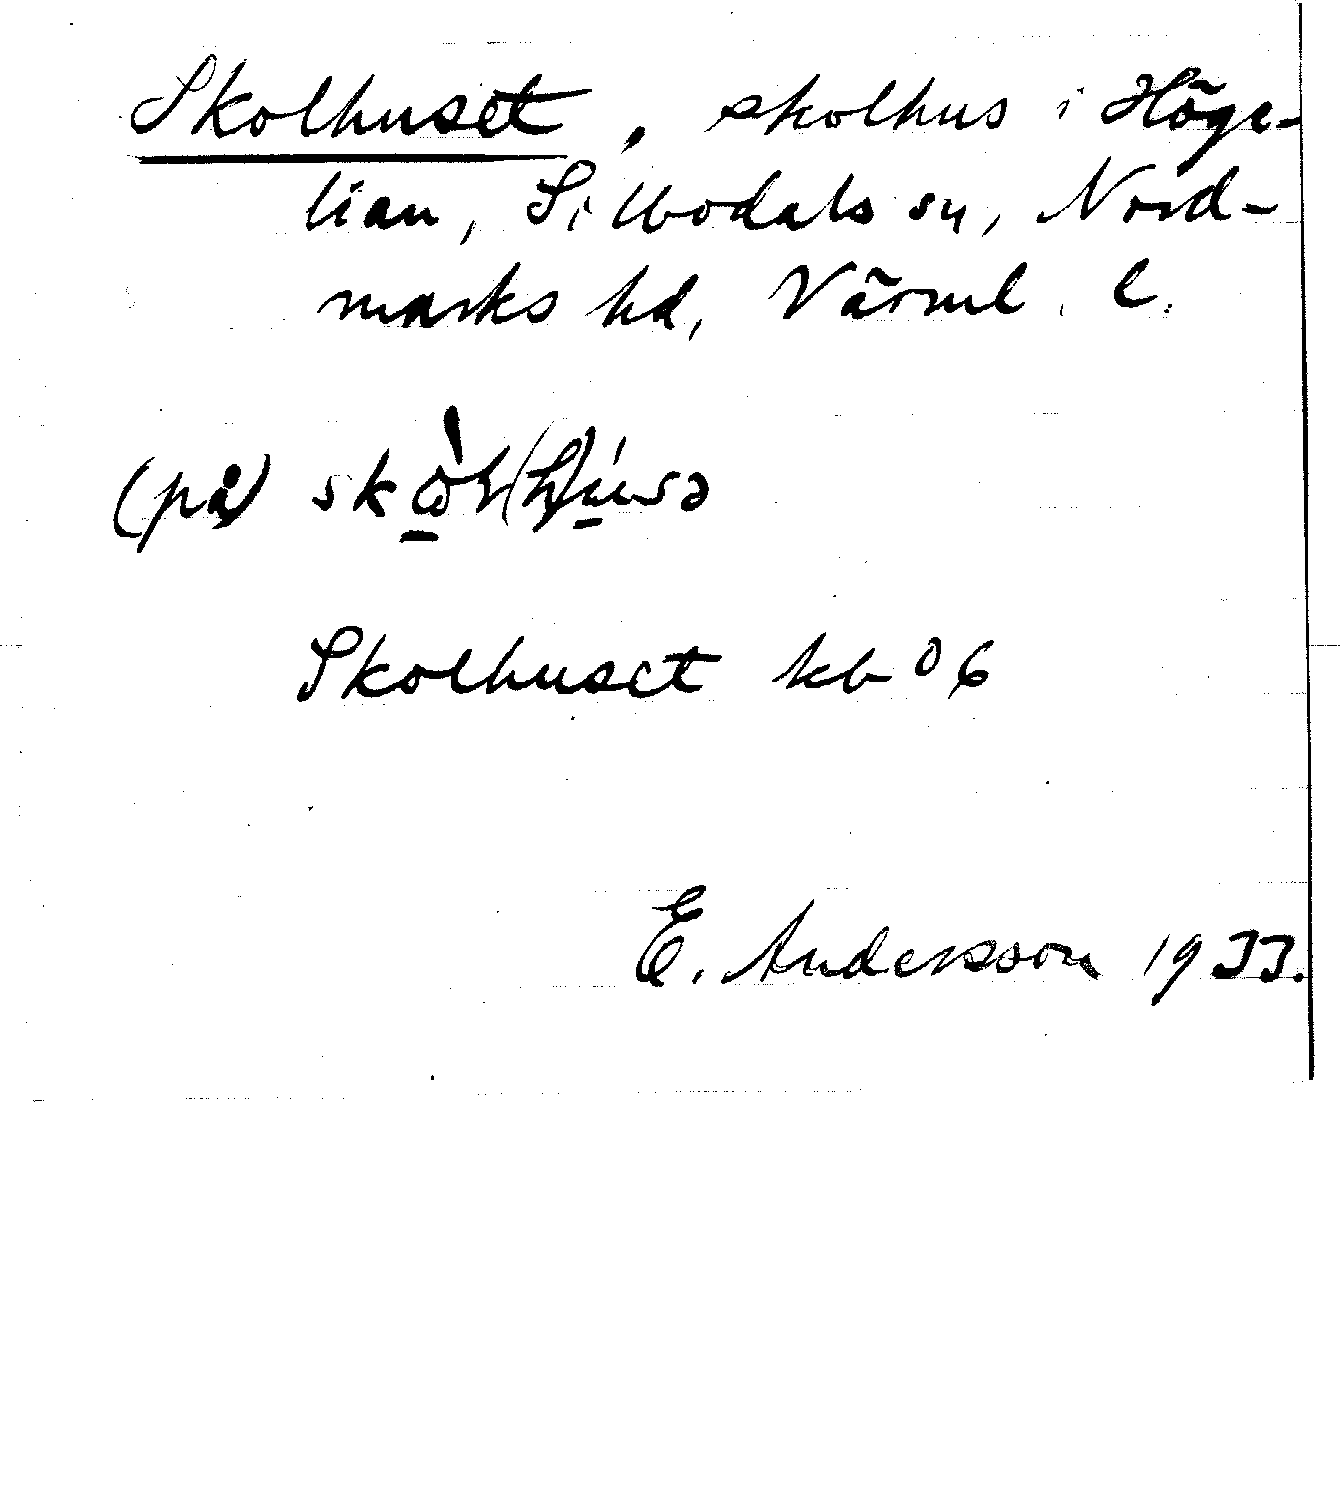 Skolhuset, skolhus i Höge-
lian, Sillbodals sn, Nord-
marks hd, Värml. l.
(på)
Skolhuset kb 06
E. Andersson 1933.